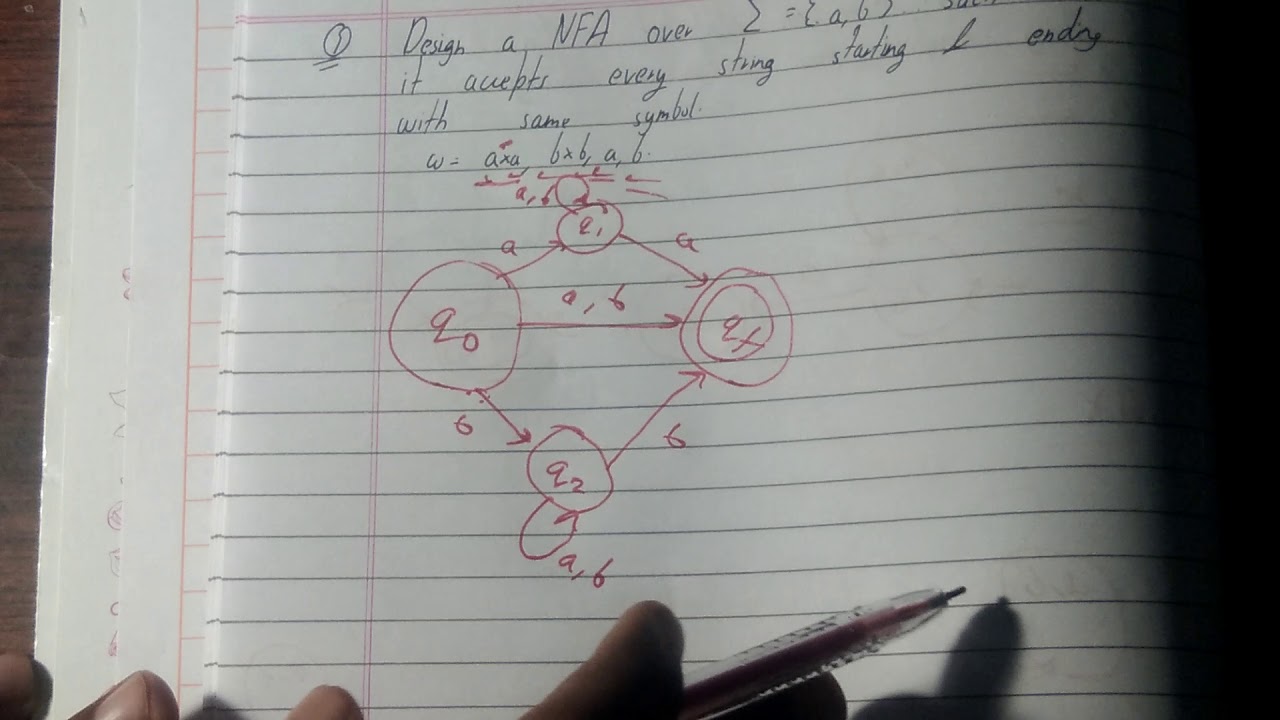 ① Design a NFA over Σ = {a, b}
it accepts every string starting & ending
with same symbol.
w = axa, bxb, a, b.
a, b
q1
a
a
a, b
q0
qf
b
b
q2
a, b